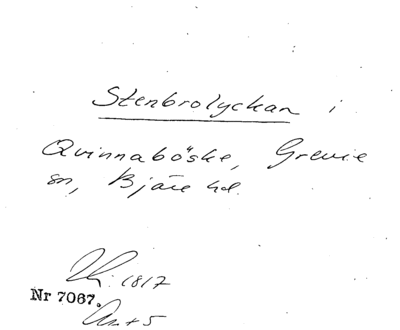 Stenbrolyckan i
Qvinnaböske, Grevie
sn, Bjäre hd.
1817
Nr 7067.